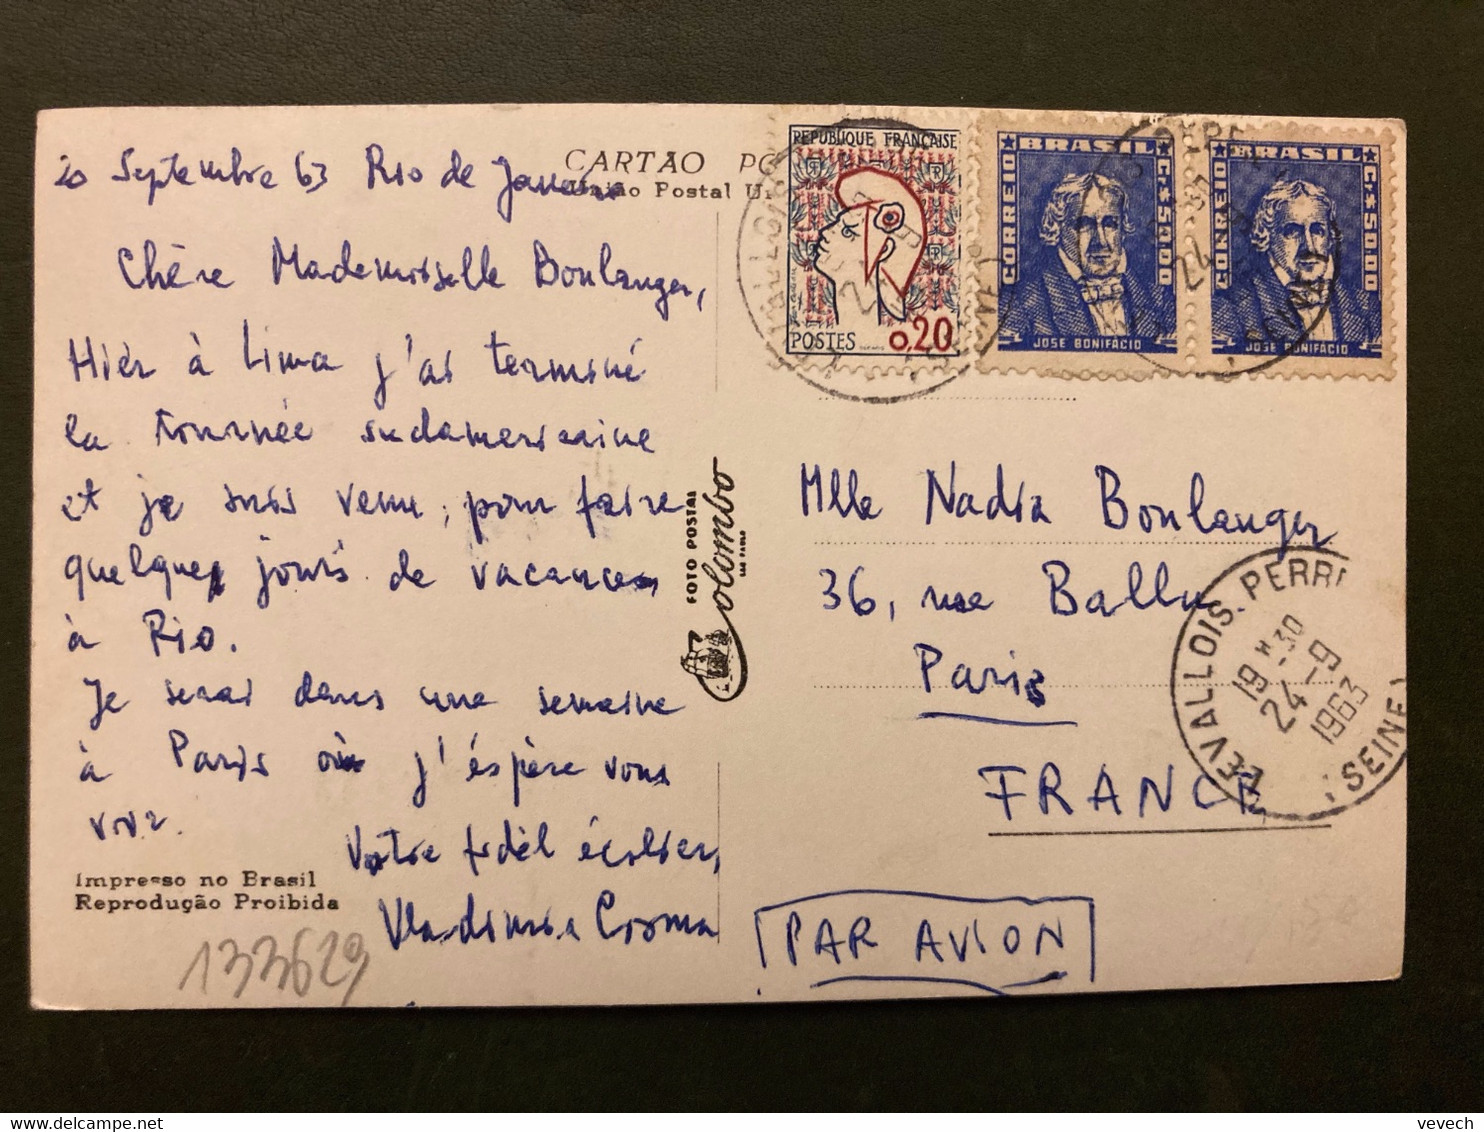 20 Septembre 63 Rio de Janeiro
Chère Mademoiselle Boulanger,
Hier à Lima j'ai terminé
la tournée sudamericaine
et je suis venu, pour faire
quelques jours de vacances
à Rio.
Je serai dans une semaine
à Paris où j'éspère vous
voir.
Votre fidèl écolier,
Vladimir Cosma
Impresso no Brasil
Reprodução Proibida
133629
CARTÃO PO
União Postal Un
FOTO POSTAL
Colombo
SÃO PAULO
REPUBLIQUE FRANÇAISE
POSTES 0.20
BRASIL
CORREIO
C.\$50,00
JOSE BONIFACIO
BRASIL
CORREIO
C.\$50,00
JOSE BONIFACIO
Mlle Nadia Boulanger
36, rue Ballu
Paris
FRANCE
PAR AVION
LEVALLOIS-PERRE
19 H 30
24-9
1963
(SEINE)
vevech